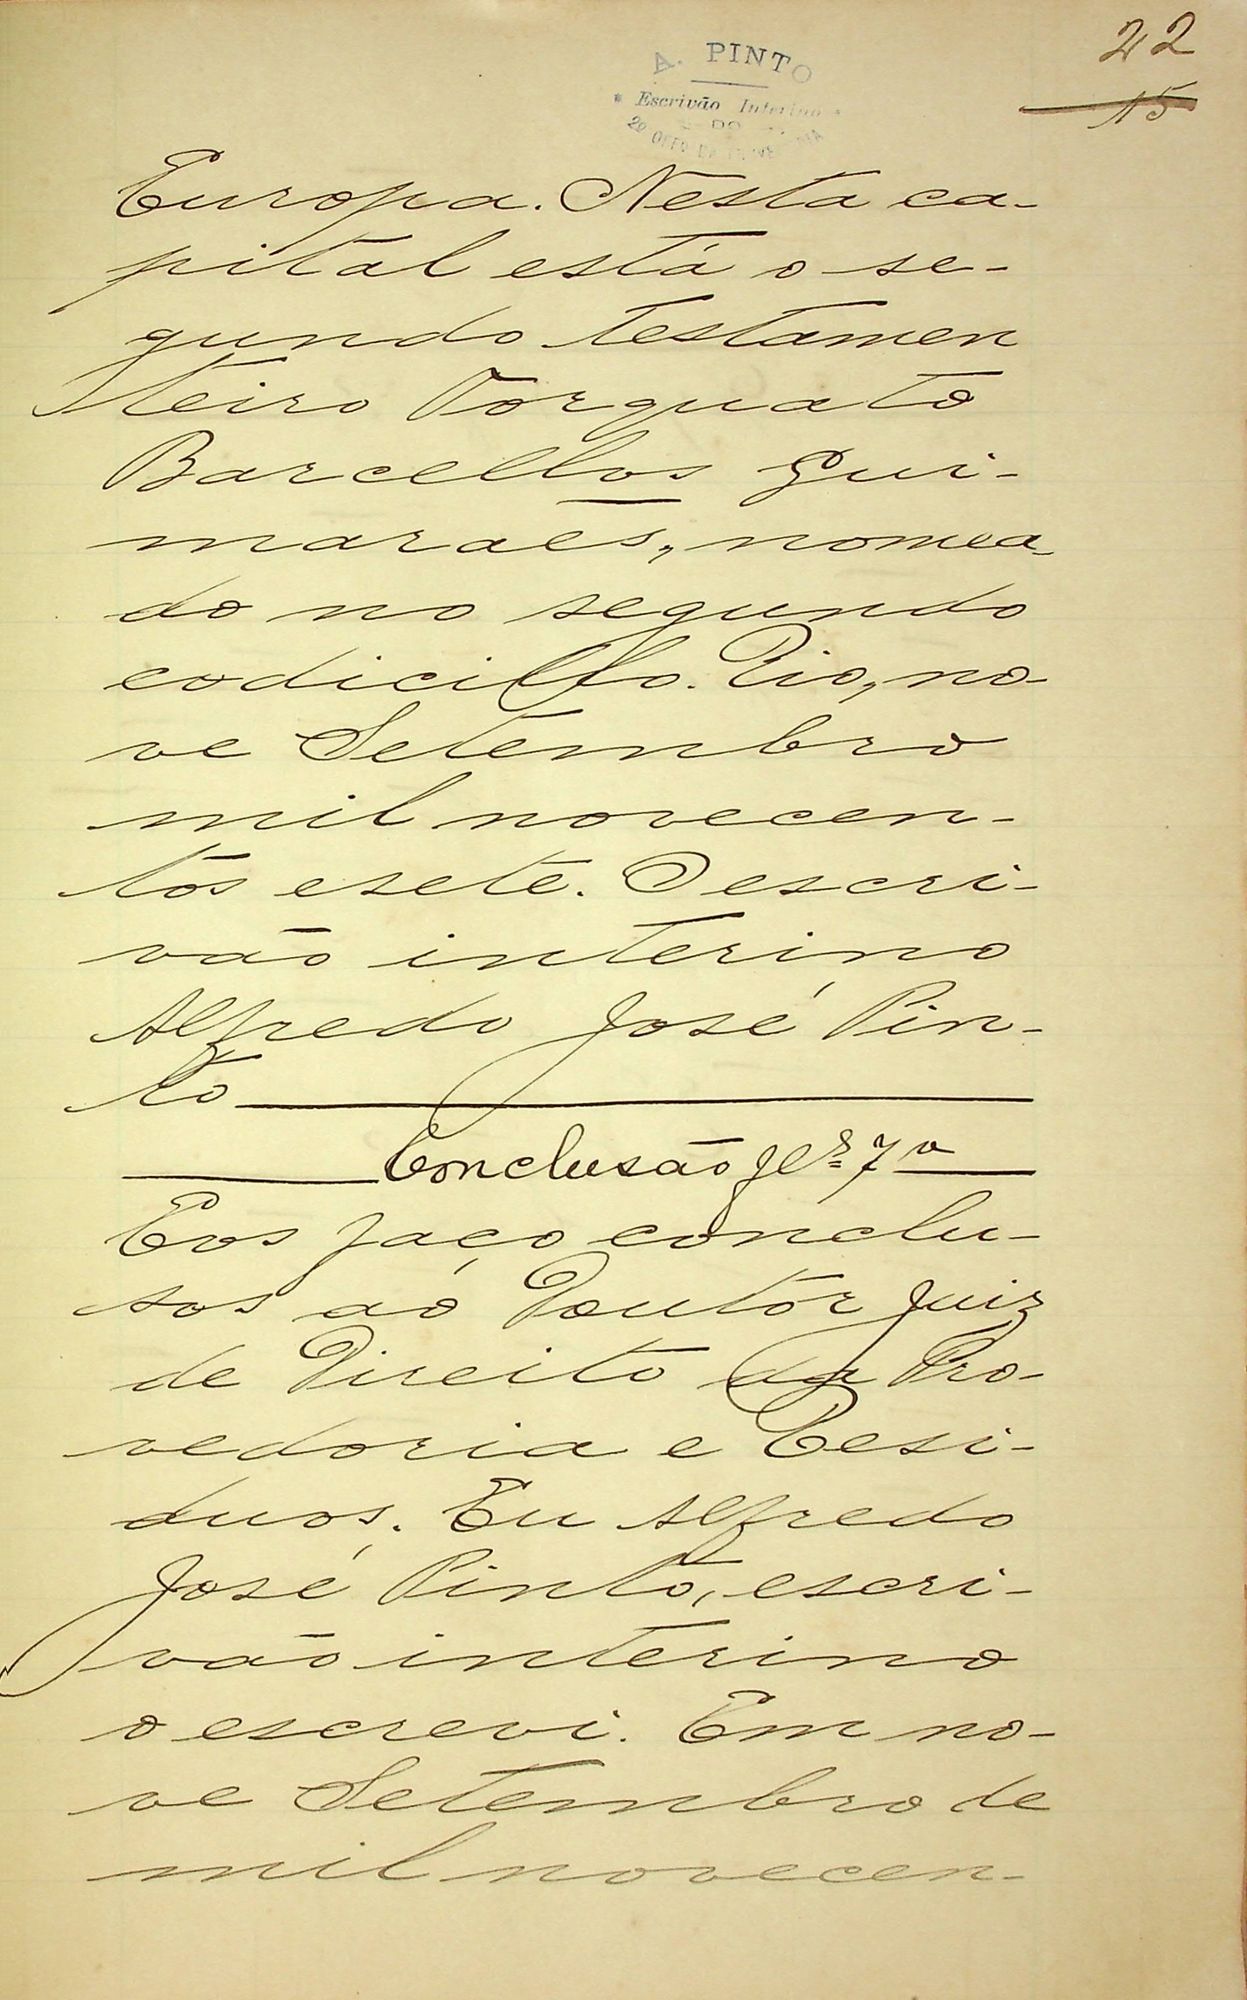 22
15
A. PINTO
Escrivão Interino
DO
Europa. Nesta ca-
pital está o se-
gundo testamen
teiro Torquato
Barcellos Gui-
marães, nomea-
do no segundo
codicillo. Rio, no-
ve Setembro
mil novecen-
tos e sete. O escri-
vão interino
Alfredo José Pin-
to
Conclusão fls 7 v
E os faço conclu-
sos ao Doutor Juiz
de Direito da Pro-
vedoria e Resi-
duos. Eu Alfredo
José Pinto, escri-
vão interino
o escrevi. Em no-
ve Setembro de
mil novecen-